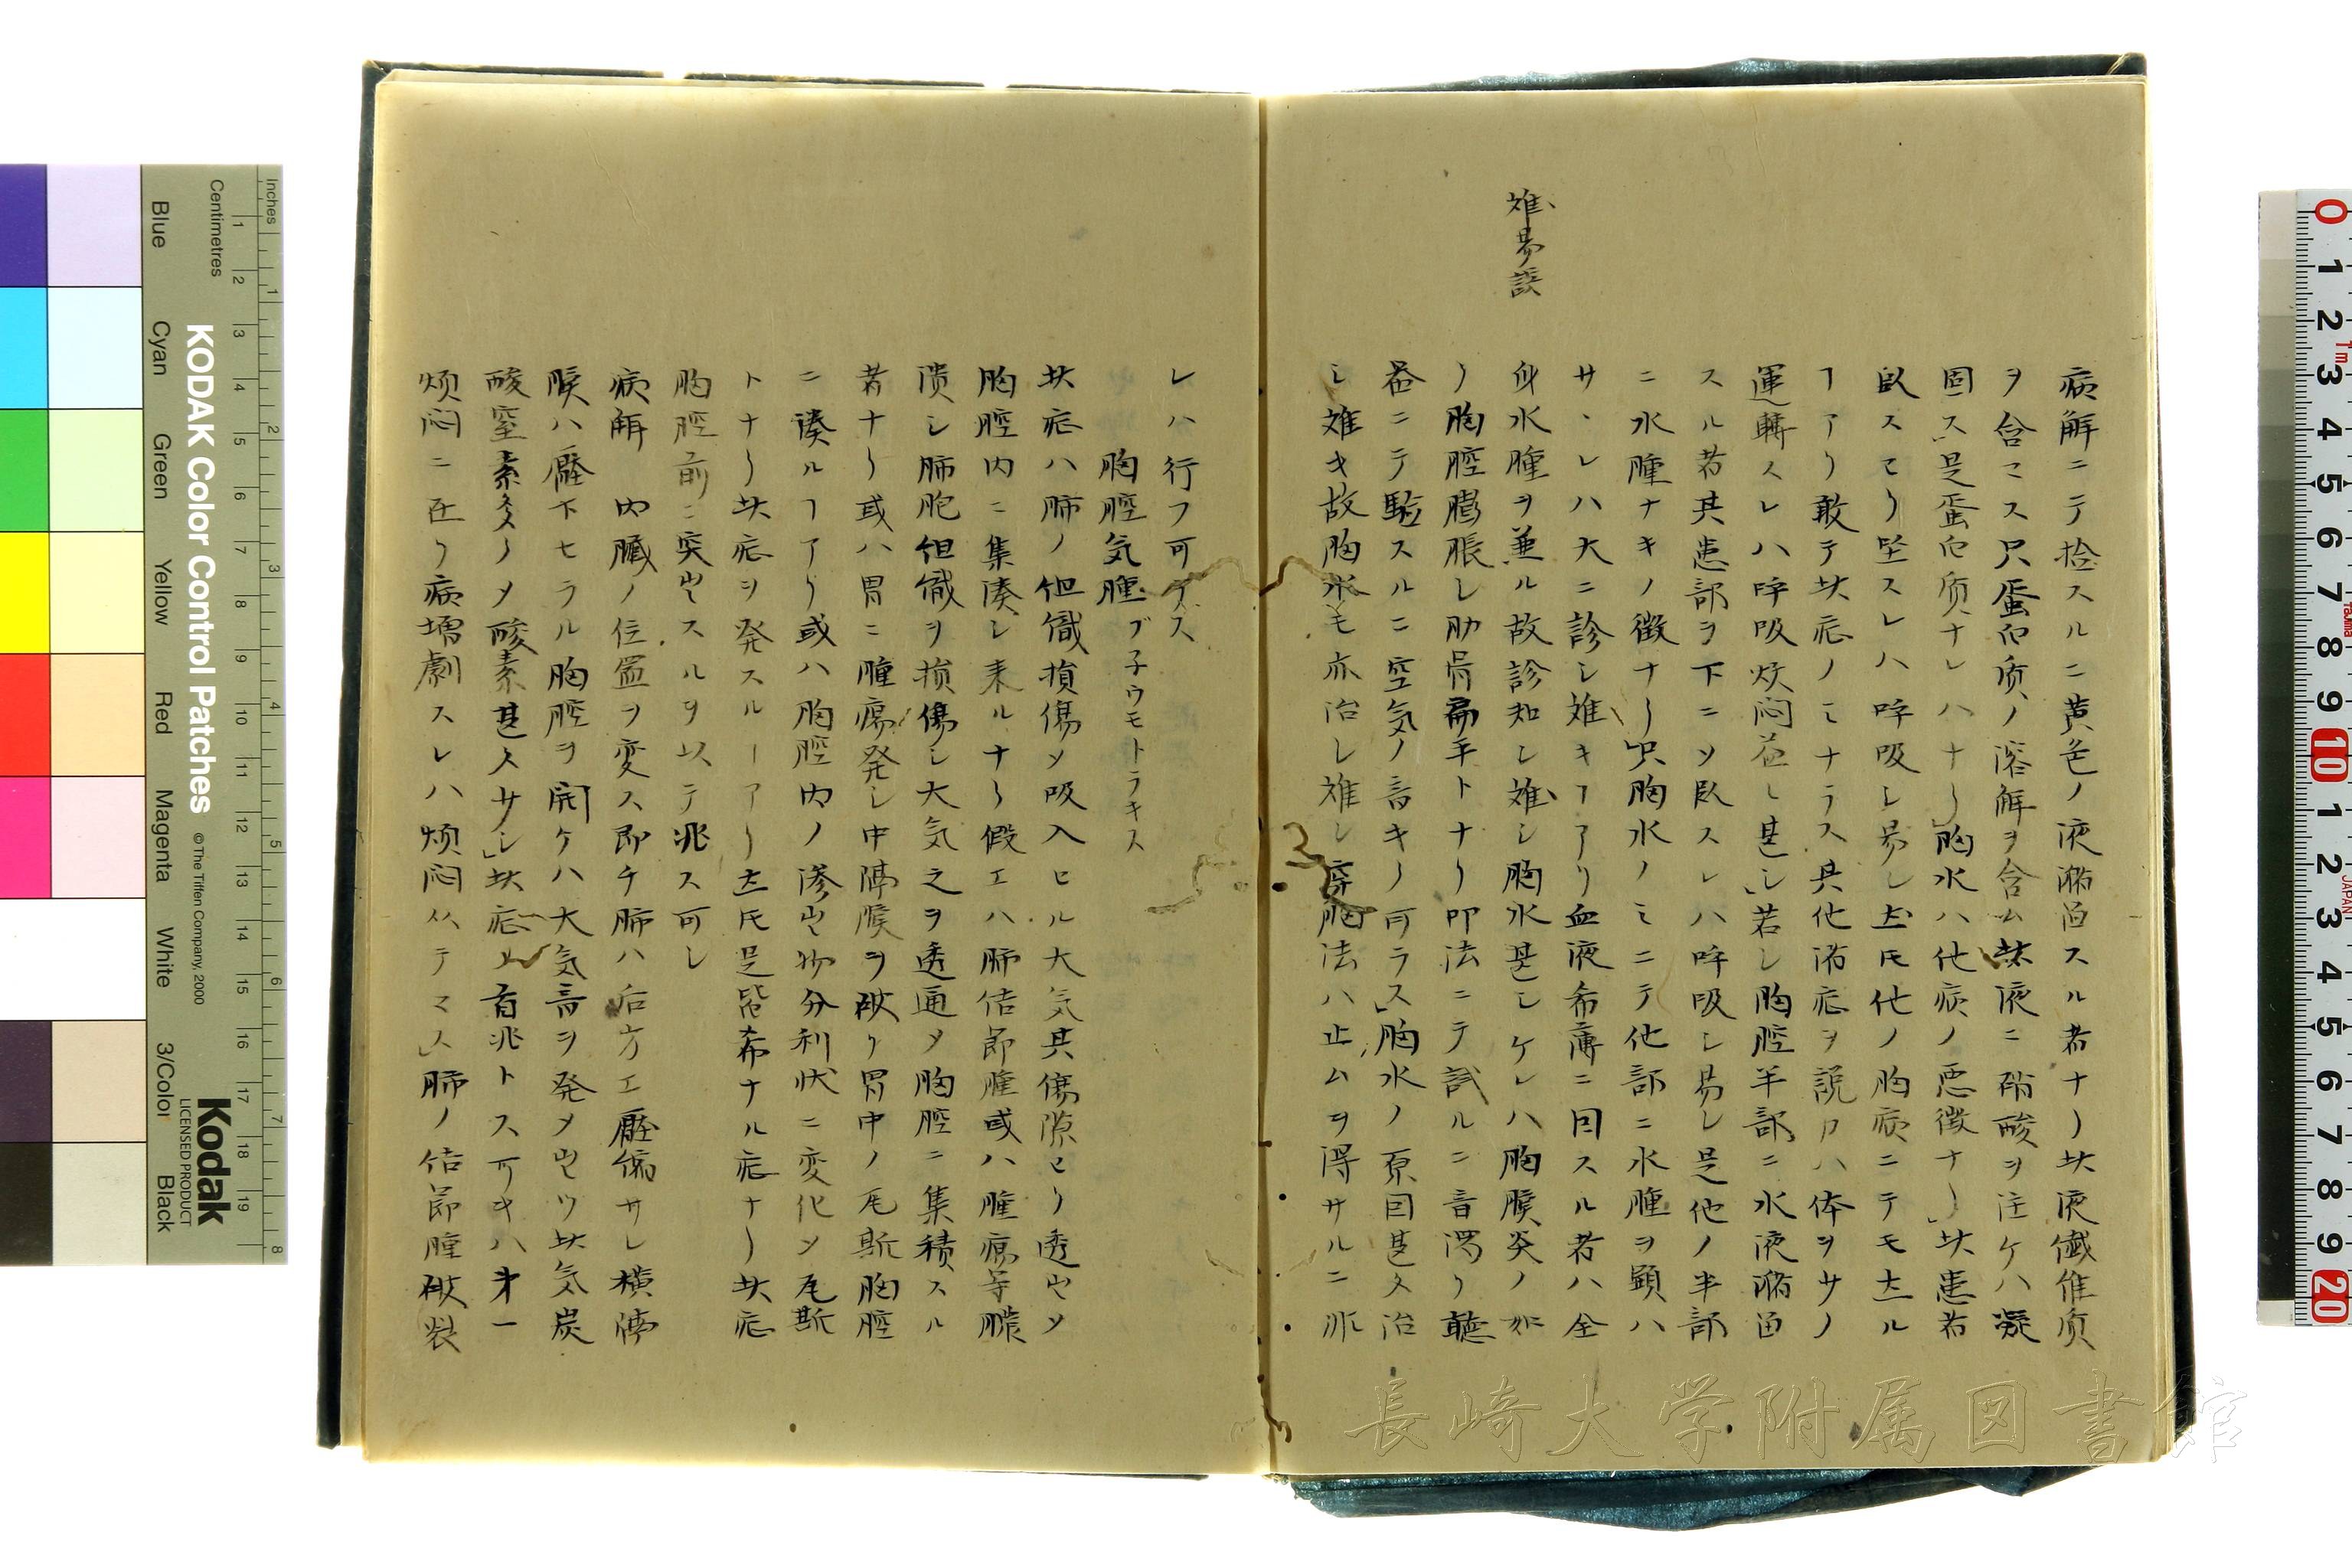 病解ニテ捡スルニ黄色ノ液瀦畄スル者ナリ此液纎維质
ヲ含マス只蛋白质ノ溶解ヲ含ム此液ニ硝酸ヲ注ケハ凝
固ス是蛋白质ナレハナリ胸水ハ他病ノ悪徴ナリ此患者
臥スヨリ坐スレハ呼吸シ易シ𪜈他ノ胸病ニテモ
ヿアリ敢テ此症ノミナラス其他諸症ヲ説
運轉スレハ呼吸煩闷甚シ若シ胸腔半部ニ水液瀦畄
スル者其患部ヲ下ニシ臥スレハ呼吸シ易シ是他ノ半部
ニ水腫ナキノ徴ナリ只胸水ノミニテ他部ニ水腫ヲ顕ハ
サヽレハ大ニ診シ難キヿアリ血液希薄ニ因スル者ハ全
身水腫ヲ兼ル故診知シ難シ胸水甚シケレハ胸膜炎ノ如
ク胸腔膨脹シ肋骨扁平トナリ叩法ニテ試ルニ音濁リ聴
器ニテ驗スルニ空気ノ音キク可ラス胸水ノ原因甚タ治
シ難キ故胸水モ亦治シ難シ穿胸法ハ止ムヲ得サルニ非
難易誤
レハ行フ可ラス
胸腔気腫 プ子ウモトラキス
此症ハ肺ノ組織損傷メ吸入セル大気其傷隙ヨリ透出メ
胸腔内ニ集湊シ来ルナリ假エハ肺结節腫或ハ腫瘍等膿
潰シ肺胞组織ヲ损傷シ大気之ヲ透通メ胸腔ニ集積スル
者ナリ或ハ胃ニ腫瘍発シ中隔膜ヲ破リ胃中ノ瓦斯胸腔
ニ湊ルヿアリ或ハ胸腔内ノ滲出物分利状ニ変化メ瓦斯
トナリ此症ヲ発スルヿアリ𪜈是皆希ナル症ナリ此症
胸腔前ニ突出スルヲ以テ兆ス可シ
病解 内臓ノ位置ヲ変ス即チ肺ハ后方エ壓偏サレ横隔
膜ハ壓下セラル胸腔ヲ開ケハ大気音ヲ発メ出ツ此気炭
酸窒素多クメ酸素甚タサシ此症ノ首兆トス可キハ第一
烦闷ニ在リ病増劇スレハ烦闷 肺ノ结節腫破裂
長崎大学附属図書館
KODAK Color Control Patches
© The Tiffen Company, 2000
Kodak
LICENSED PRODUCT
Inches
Centimetres
Blue
Cyan
Green
Yellow
Red
Magenta
White
3/Color
Black
1 2 3 4 5 6 7 8 9 10 11 12 13 14 15 16 17 18 19
1 2 3 4 5 6 7 8
0 1 2 3 4 5 6 7 8 9 10 1 2 3 4 5 6 7 8 9 20
JAPAN